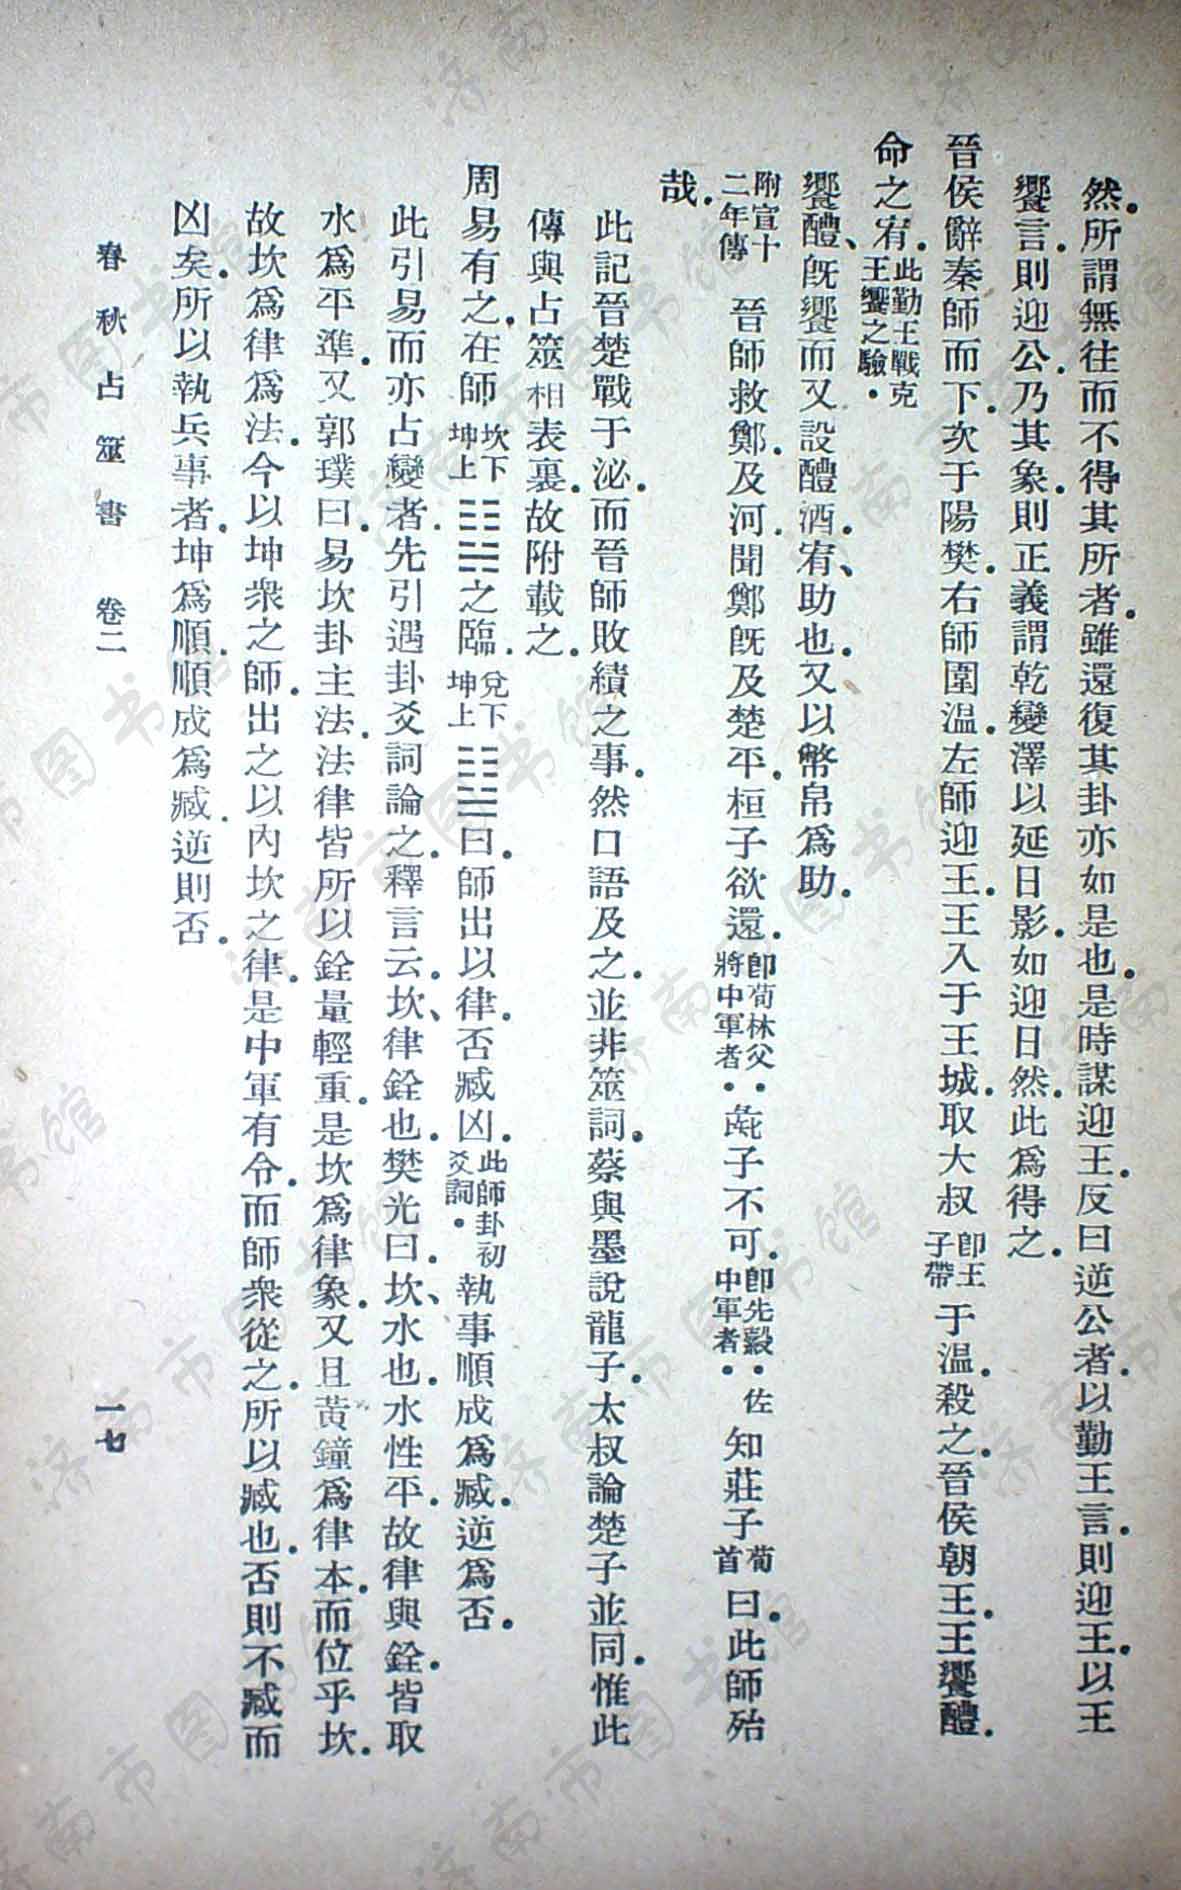 然所謂無往而不得其所者雖還復其卦亦如是也是時謀迎王反曰逆公者以勤王言則迎王以王
饗言則迎公乃其象則正義謂乾變澤以延日影如迎日然此為得之
晉侯辭秦師而下次于陽樊右師圍溫左師迎王王入于王城取大叔卽王子帶于溫殺之晉侯朝王王饗醴
命之宥此勤王戰克王饗之驗
饗醴既饗而又設醴酒宥助也又以幣帛為助
附宣十二年傳 晉師救鄭及河聞鄭既及楚平桓子欲還卽荀林父將中軍者彘子不可卽先縠佐中軍者知莊子荀首曰此師殆
哉
此記晉楚戰于泌而晉師敗績之事然口語及之並非筮詞蔡與墨說龍子太叔論楚子並同惟此
傳與占筮相表裏故附載之
周易有之在師坎下坤上䷆之臨兌下坤上䷒曰師出以律否臧凶此師卦初爻詞執事順成為臧逆為否
此引易而亦占變者先引遇卦爻詞論之釋言云坎律銓也樊光曰坎水也水性平故律與銓皆取
水為平準又郭璞曰易坎卦主法法律皆所以銓量輕重是坎為律象又且黃鐘為律本而位乎坎
故坎為律為法今以坤衆之師出之以內坎之律是中軍有令而師衆從之所以臧也否則不臧而
凶矣所以執兵事者坤為順順成為臧逆則否
春秋占筮書 卷二 一七